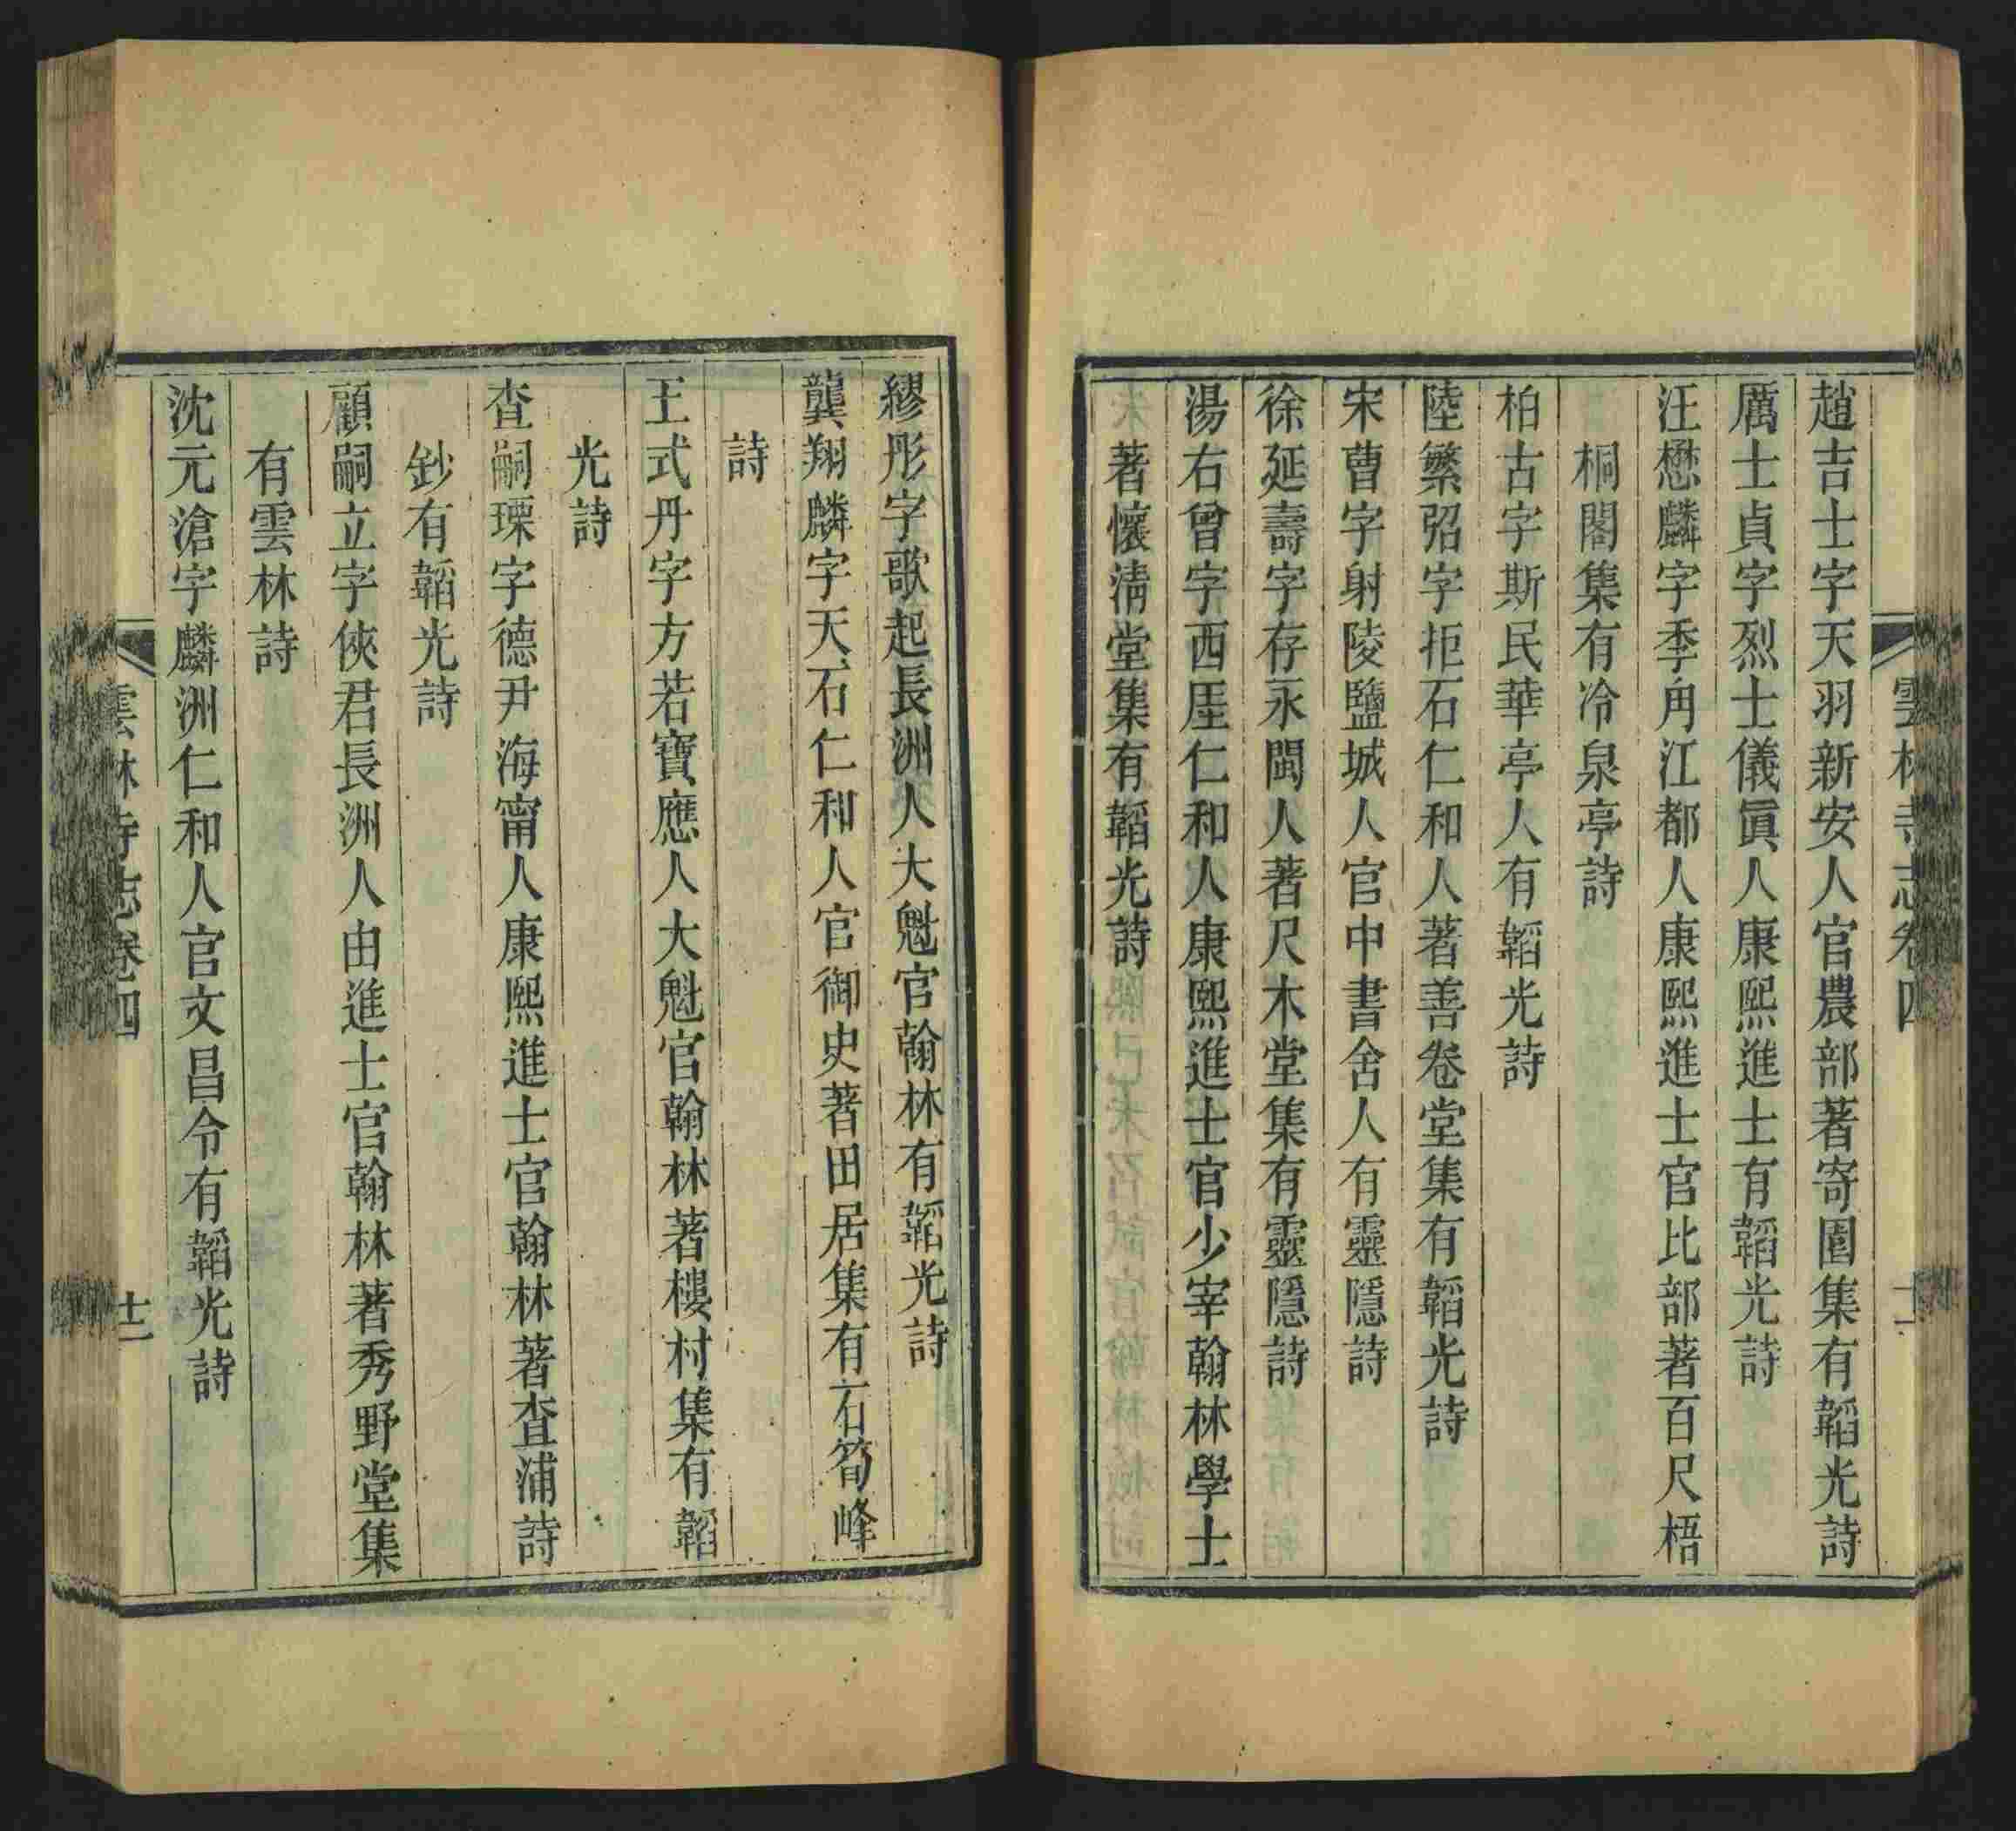 趙吉士字天羽新安人官農部著寄園集有韜光詩
厲士貞字烈士儀眞人康熙進士有韜光詩
汪懋麟字季甪江都人康熙進士官比部著百尺梧
桐閣集有冷泉亭詩
柏古字斯民華亭人有韜光詩
陸繁弨字拒石仁和人著善卷堂集有韜光詩
宋曹字射陵鹽城人官中書舍人有靈隱詩
徐延壽字存永閩人著尺木堂集有靈隱詩
湯右曾字西厓仁和人康熙進士官少宰翰林學士
著懷淸堂集有韜光詩
雲林寺志卷四
繆彤字歌起長洲人大魁官翰林有韜光詩
龔翔麟字天石仁和人官御史著田居集有石筍峰
詩
王式丹字方若寶應人大魁官翰林著樓村集有韜
光詩
查嗣瑮字德尹海甯人康熙進士官翰林著查浦詩
鈔有韜光詩
顧嗣立字俠君長洲人由進士官翰林著秀野堂集
有雲林詩
沈元滄字麟洲仁和人官文昌令有韜光詩
雲林寺志卷四
十二